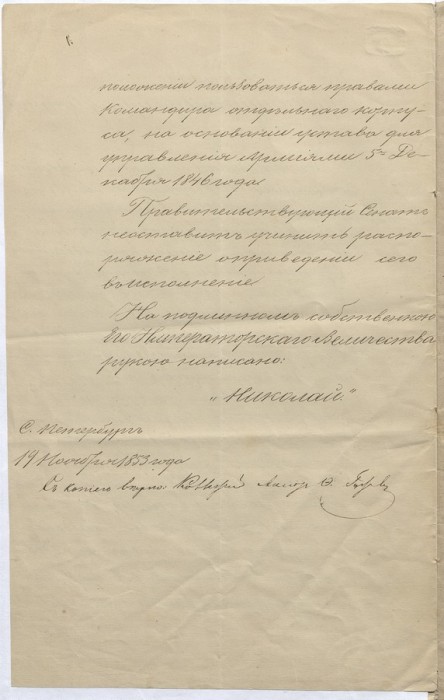 положении пользоваться правами
Командира отдѣльнаго корпу-
са, на основаніи устава для
управленія Арміями 5го Де-
кабря 1846 года.
Правительствующій Сенатъ
неоставитъ учинить распо-
ряженіе о приведеніи сего
въ исполненіе
На подлинномъ собственною
Его Императорскаго Величества
рукою написано:
„Николай"
С. Петербургъ
19 Ноября 1853 года
Съ копіею вѣрно: